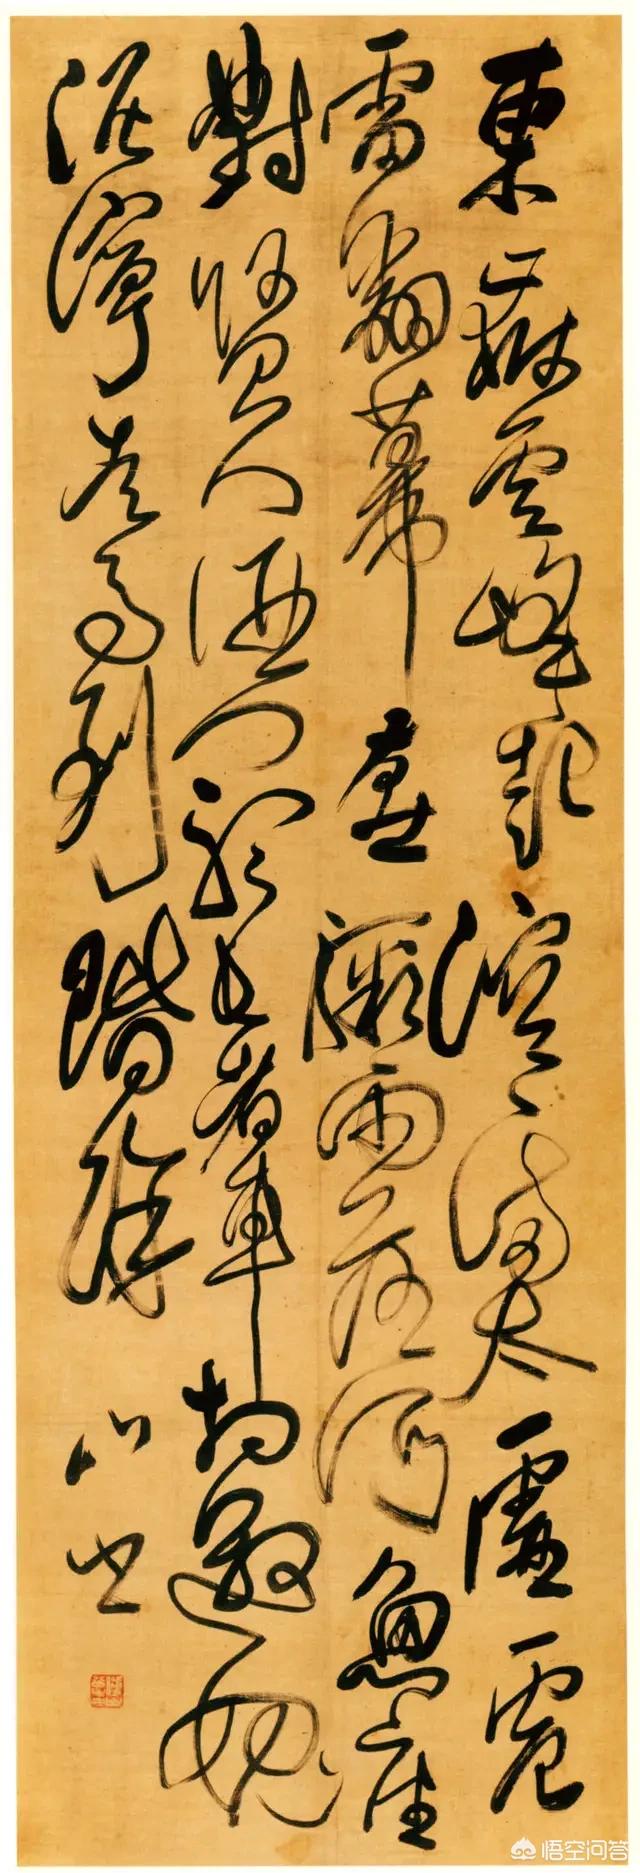 東嶽雲峰起溶溶滿太虛震
雷翻幕燕驟雨落河魚座
對賢人酒門聽長者車相邀愧
泥濘馬到階除
山書
悟空问答